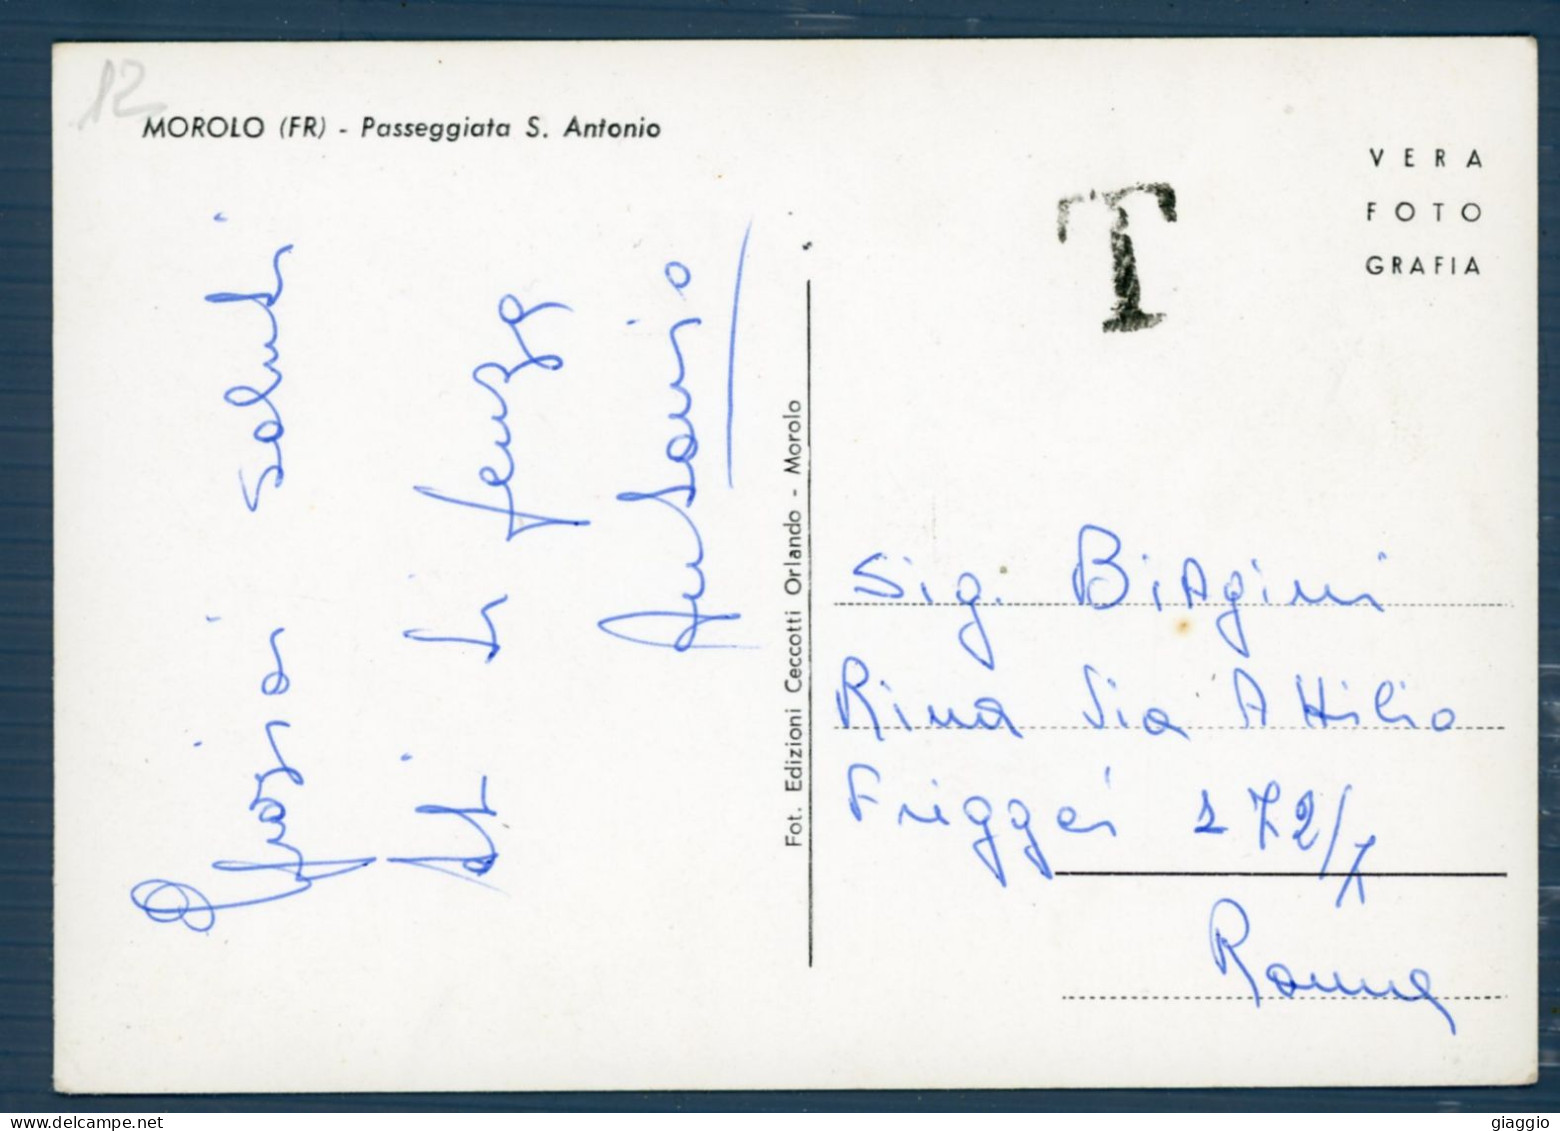 12
MOROLO (FR) - Passeggiata S. Antonio
VERA
FOTO
GRAFIA
T
saluti
Antonio
Fot. Edizioni Ceccotti Orlando - Morolo
Sig. BiAgini
Rina Via Attilio
Friggeri 172/7
Roma
giaggio